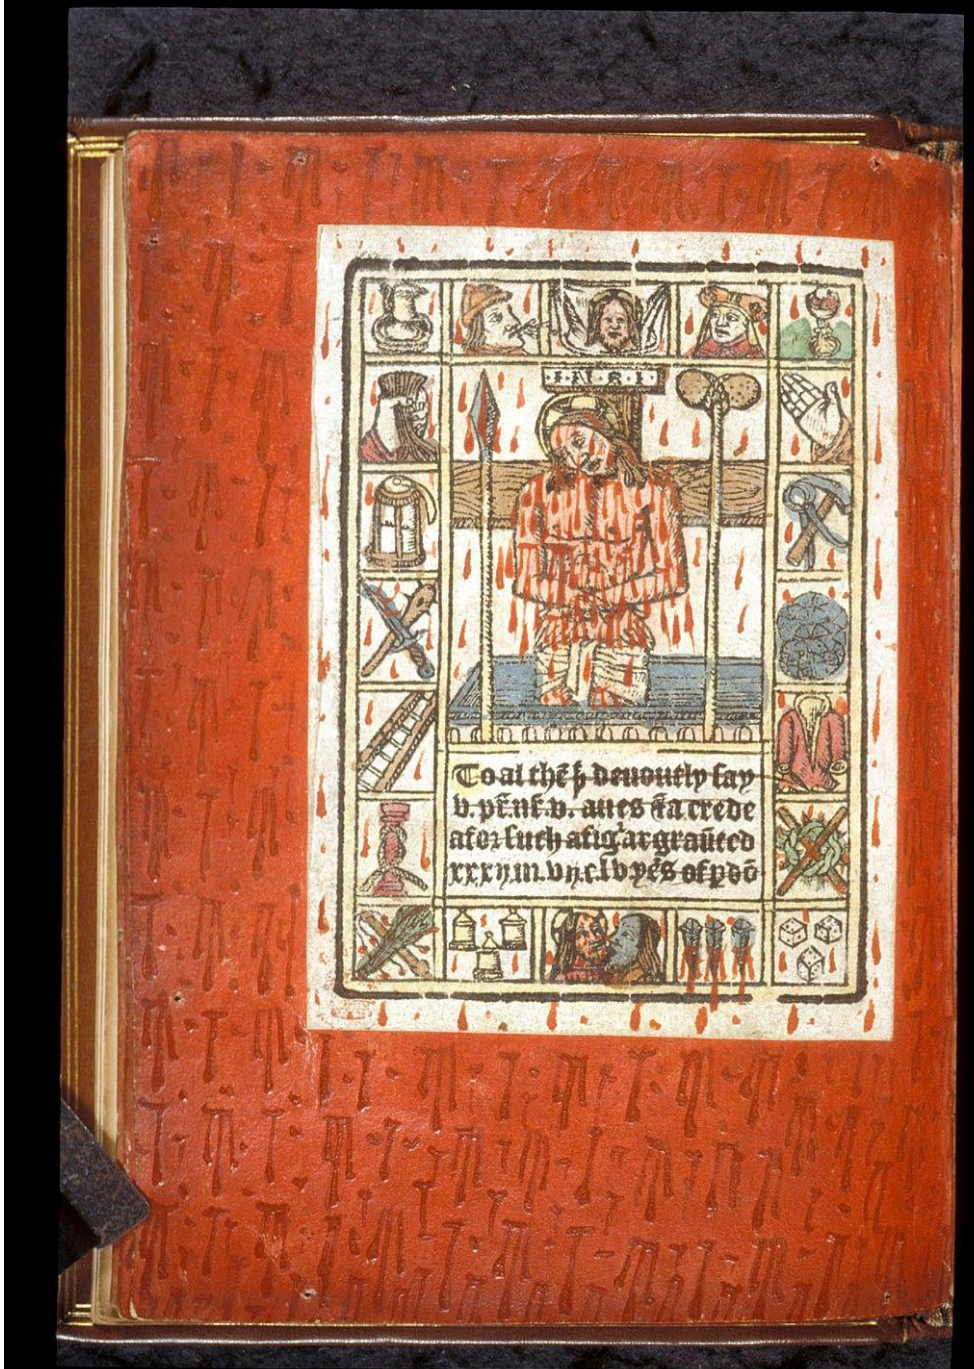 I·N·R·I
To al thē þ deuoutely say
v. pr̄. nr̄. v. aues & a crede
afor such a figͬ ar graūted
xxxij.m.vij.c.lv yēs of pdō